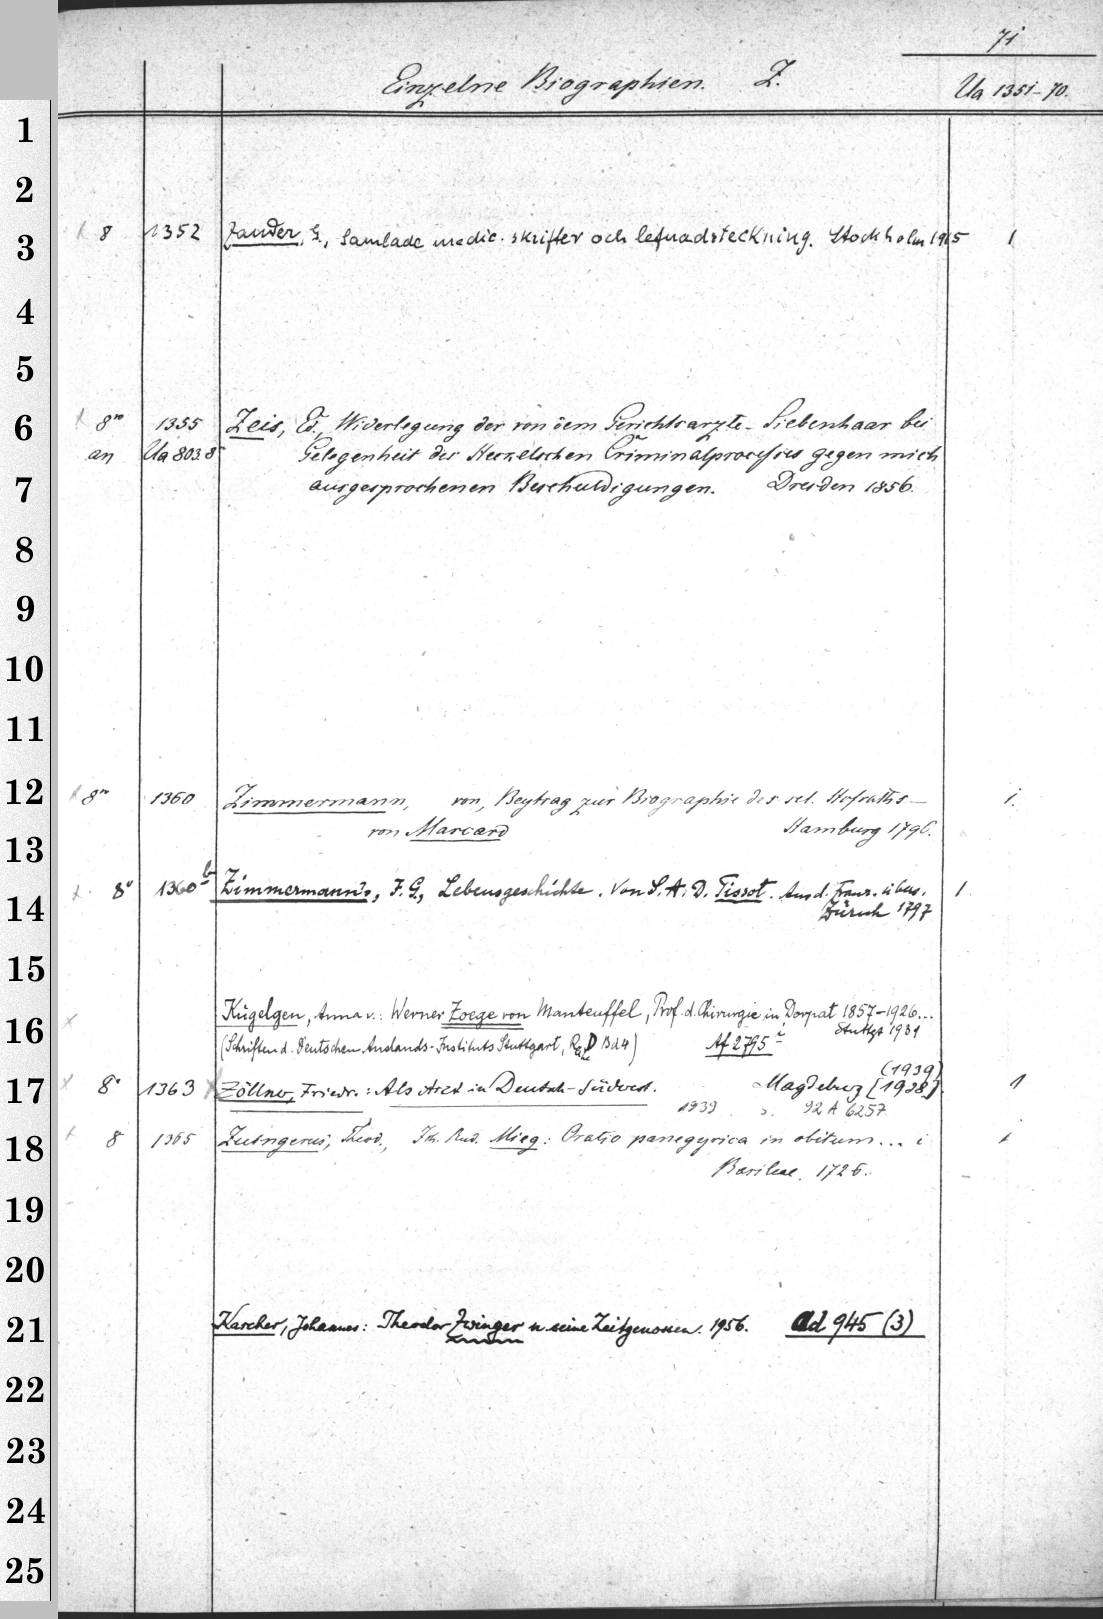 71
Einzelne Biographien. Z.
Ua 1351-70.
1
2
3
8 1352 Zander, G., Samlade medic. skrifter och lefnadsteckning. Stockholm 1915 1
4
5
6
8vo 1355 Zeis, Ed., Widerlegung der von dem Gerichtsarzte Siebenhaar bei
an Ua 803.8° Gelegenheit des Criminalprocesses gegen mich
7
ausgesprochenen Beschuldigungen. Dresden 1856.
8
9
10
11
12
8vo 1360 Zimmermann, von, Beytrag zur Biographie des sel. Hofraths 1.
von Marcard Hamburg 1796.
13
14
8° 1360b Zimmermann's, F. G., Lebensgeschichte. Von S. A. D. Tissot. Aus d. Franz. übers. 1
Zürich 1797
15
16
Kügelgen, Anna v.: Werner Zoege von Manteuffel, Prof. d. Chirurgie in Dorpat 1857-1926...
Stuttgt 1931
(Schriften d. Deutschen Auslands-Instituts Stuttgart, Reihe D Bd 4) Af 2795 i
17
(1939)
8° 1363 Zöllner, Friedr.: Als Arzt in Deutsch-Südwest. Magdeburg [1938]. 1
1939 92 A 6257
18
8 1365 Zuingerus, Theod., Jh. Rud. Mieg: Oratio panegyrica in obitum... i 1
Basileae. 1725.
19
20
21
Karcher, Johannes: Theodor Zwinger u. seine Zeitgenossen. 1956. Ad 945 (3)
22
23
24
25